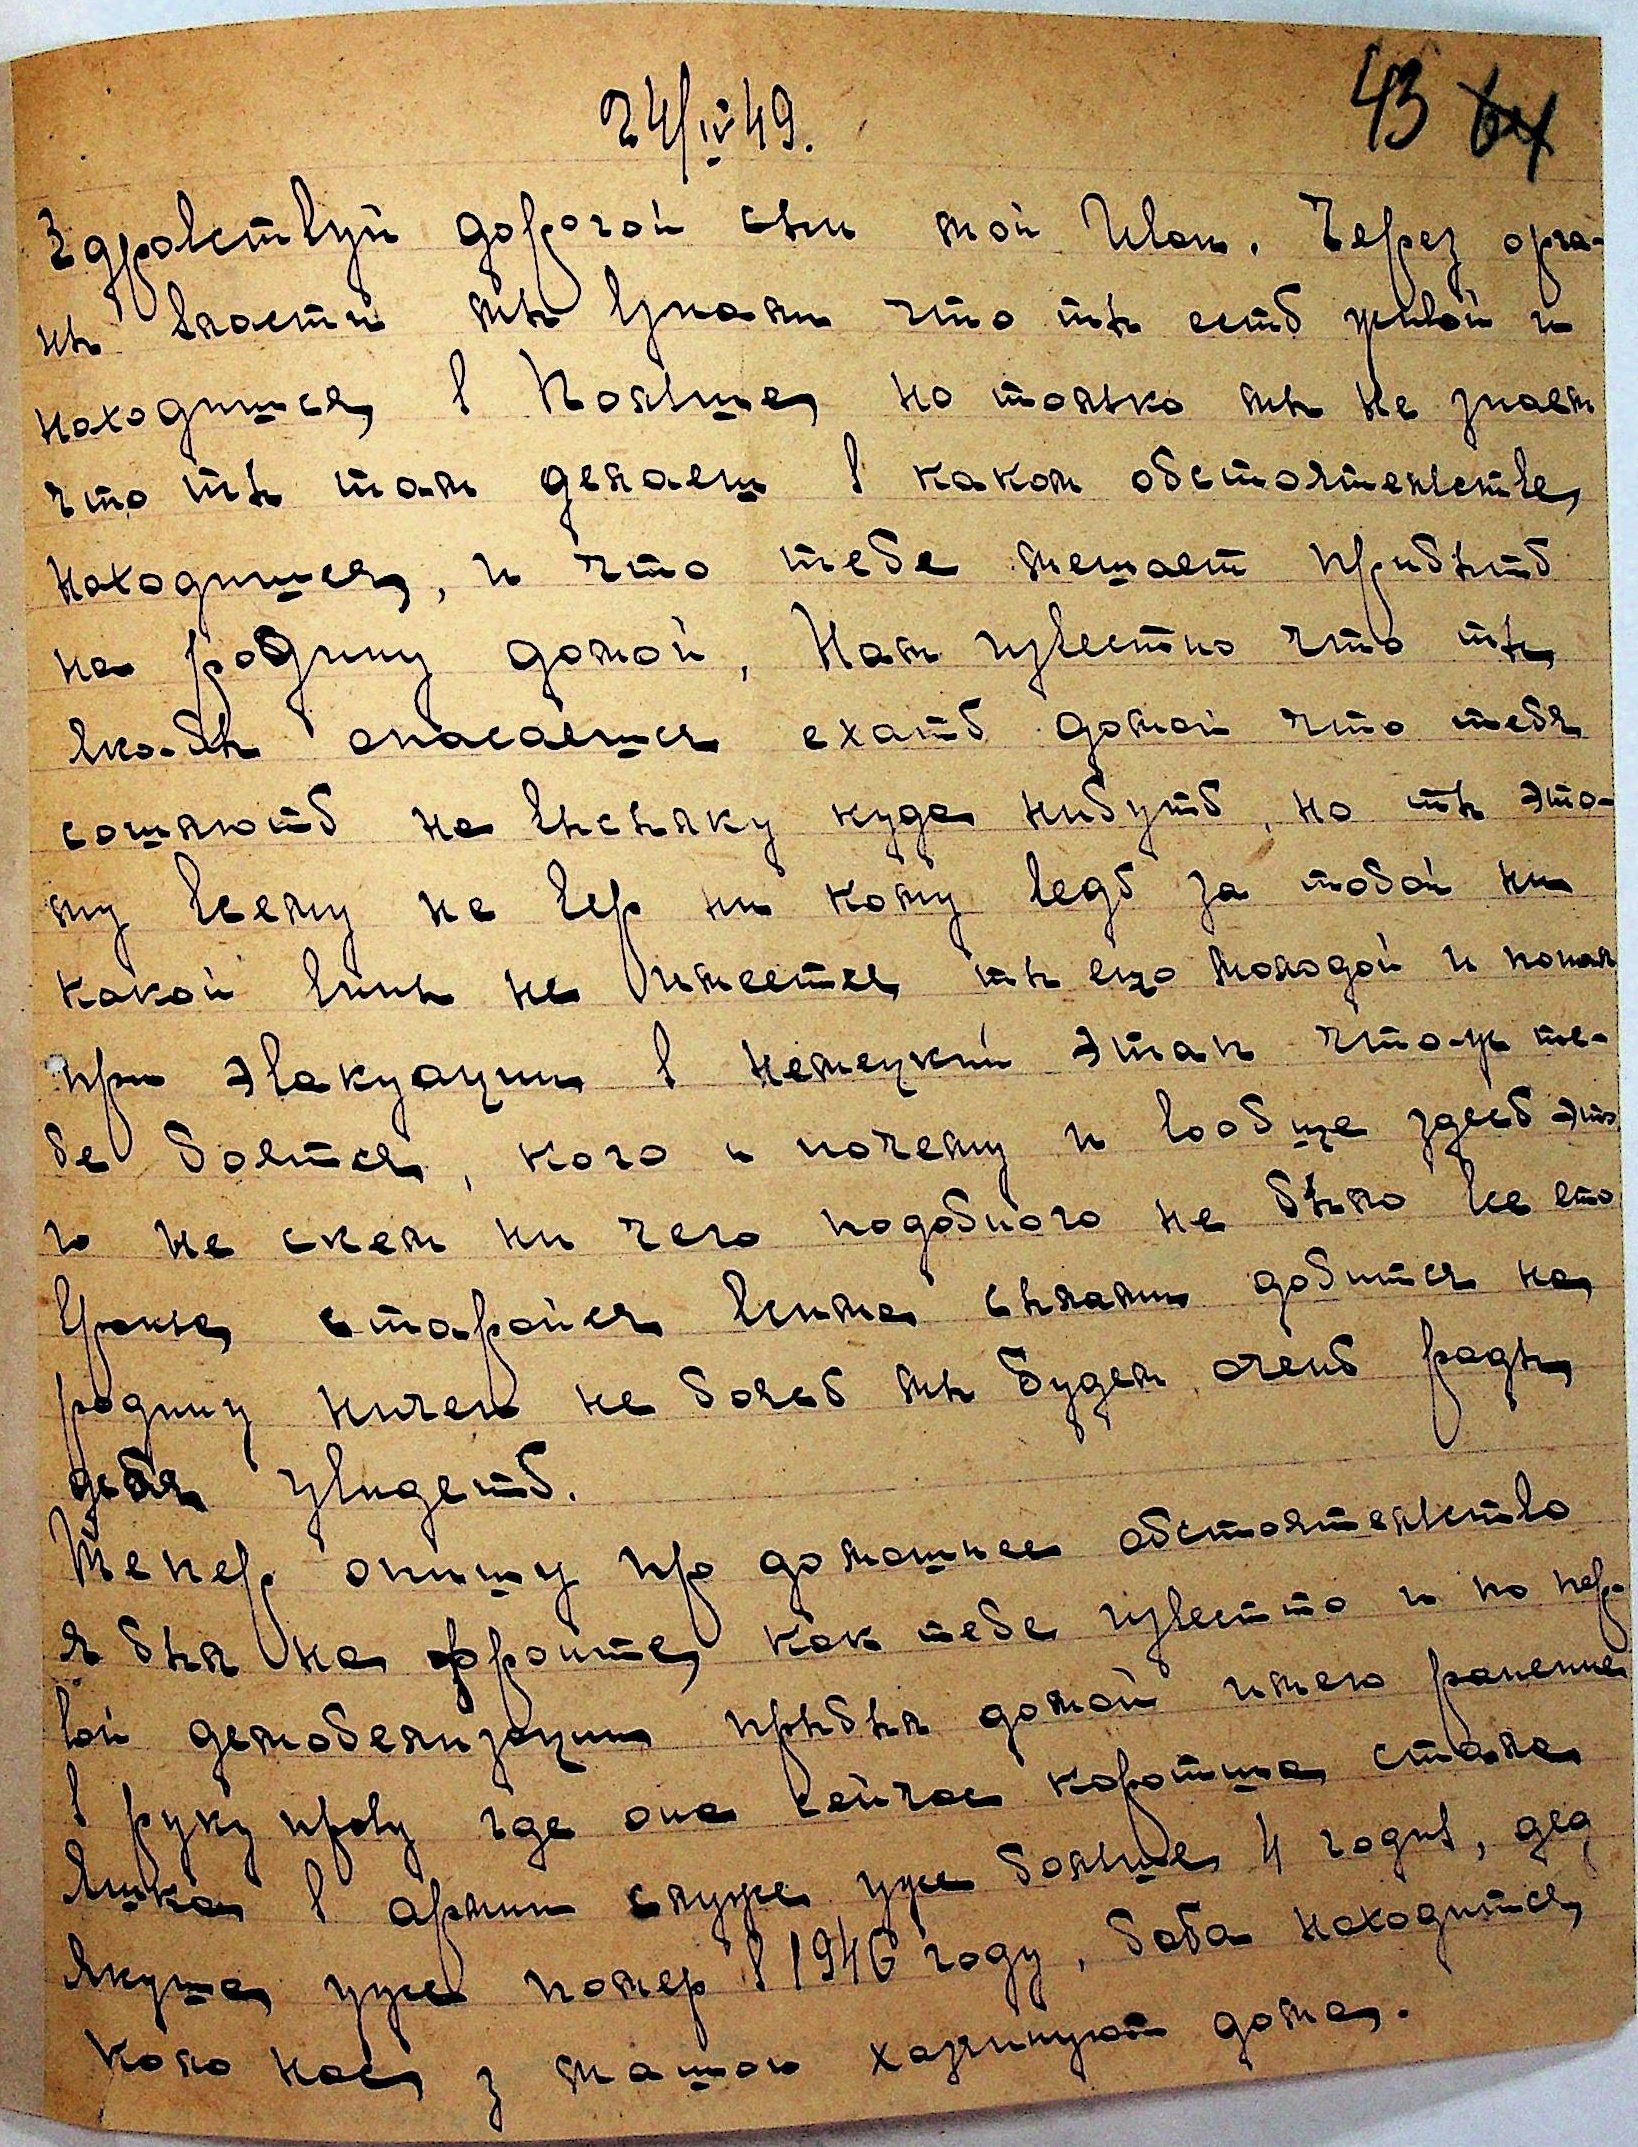 24/IV 49.
43
Здравствуй дорогой сын мой Иван. Через орга-
ны власти мы узнали что ты есть живой и
находишся в Польше, но только мы не знаем
что ты там делаеш в каком обстоятельстве
находишся, и что тебе мешает прибыть
на родину домой, Нам извество что ты
яко-бы опасаешся ехать домой что тебя
сошлють на высылку куда нибуть, но ты это-
му всему не вер ни кому ведь за тобой ни
какой вины не имеется ты ещо молодой и попал
при эвакуации в немецкий этап что-ж те-
бе боятся, кого и почему и вообще здесь это
го не скем ни чего подобного не было все ето
вранье, старойся всима сылами добится на
родину ничего не боясь мы будем очень рады
тебя увидеть.
Тепер опишу про домошнее обстоятельство
я был на фронте, как тебе извество и по пер-
вой демобелизации прыбыл домой имею ранение
в руку праву где она сейчас коротша стала
Яшка в армии служе уже больше 4 годив, дед
Якуша уже помер в 1946 году, баба находится
коло нас, з машою хазинуют дома.